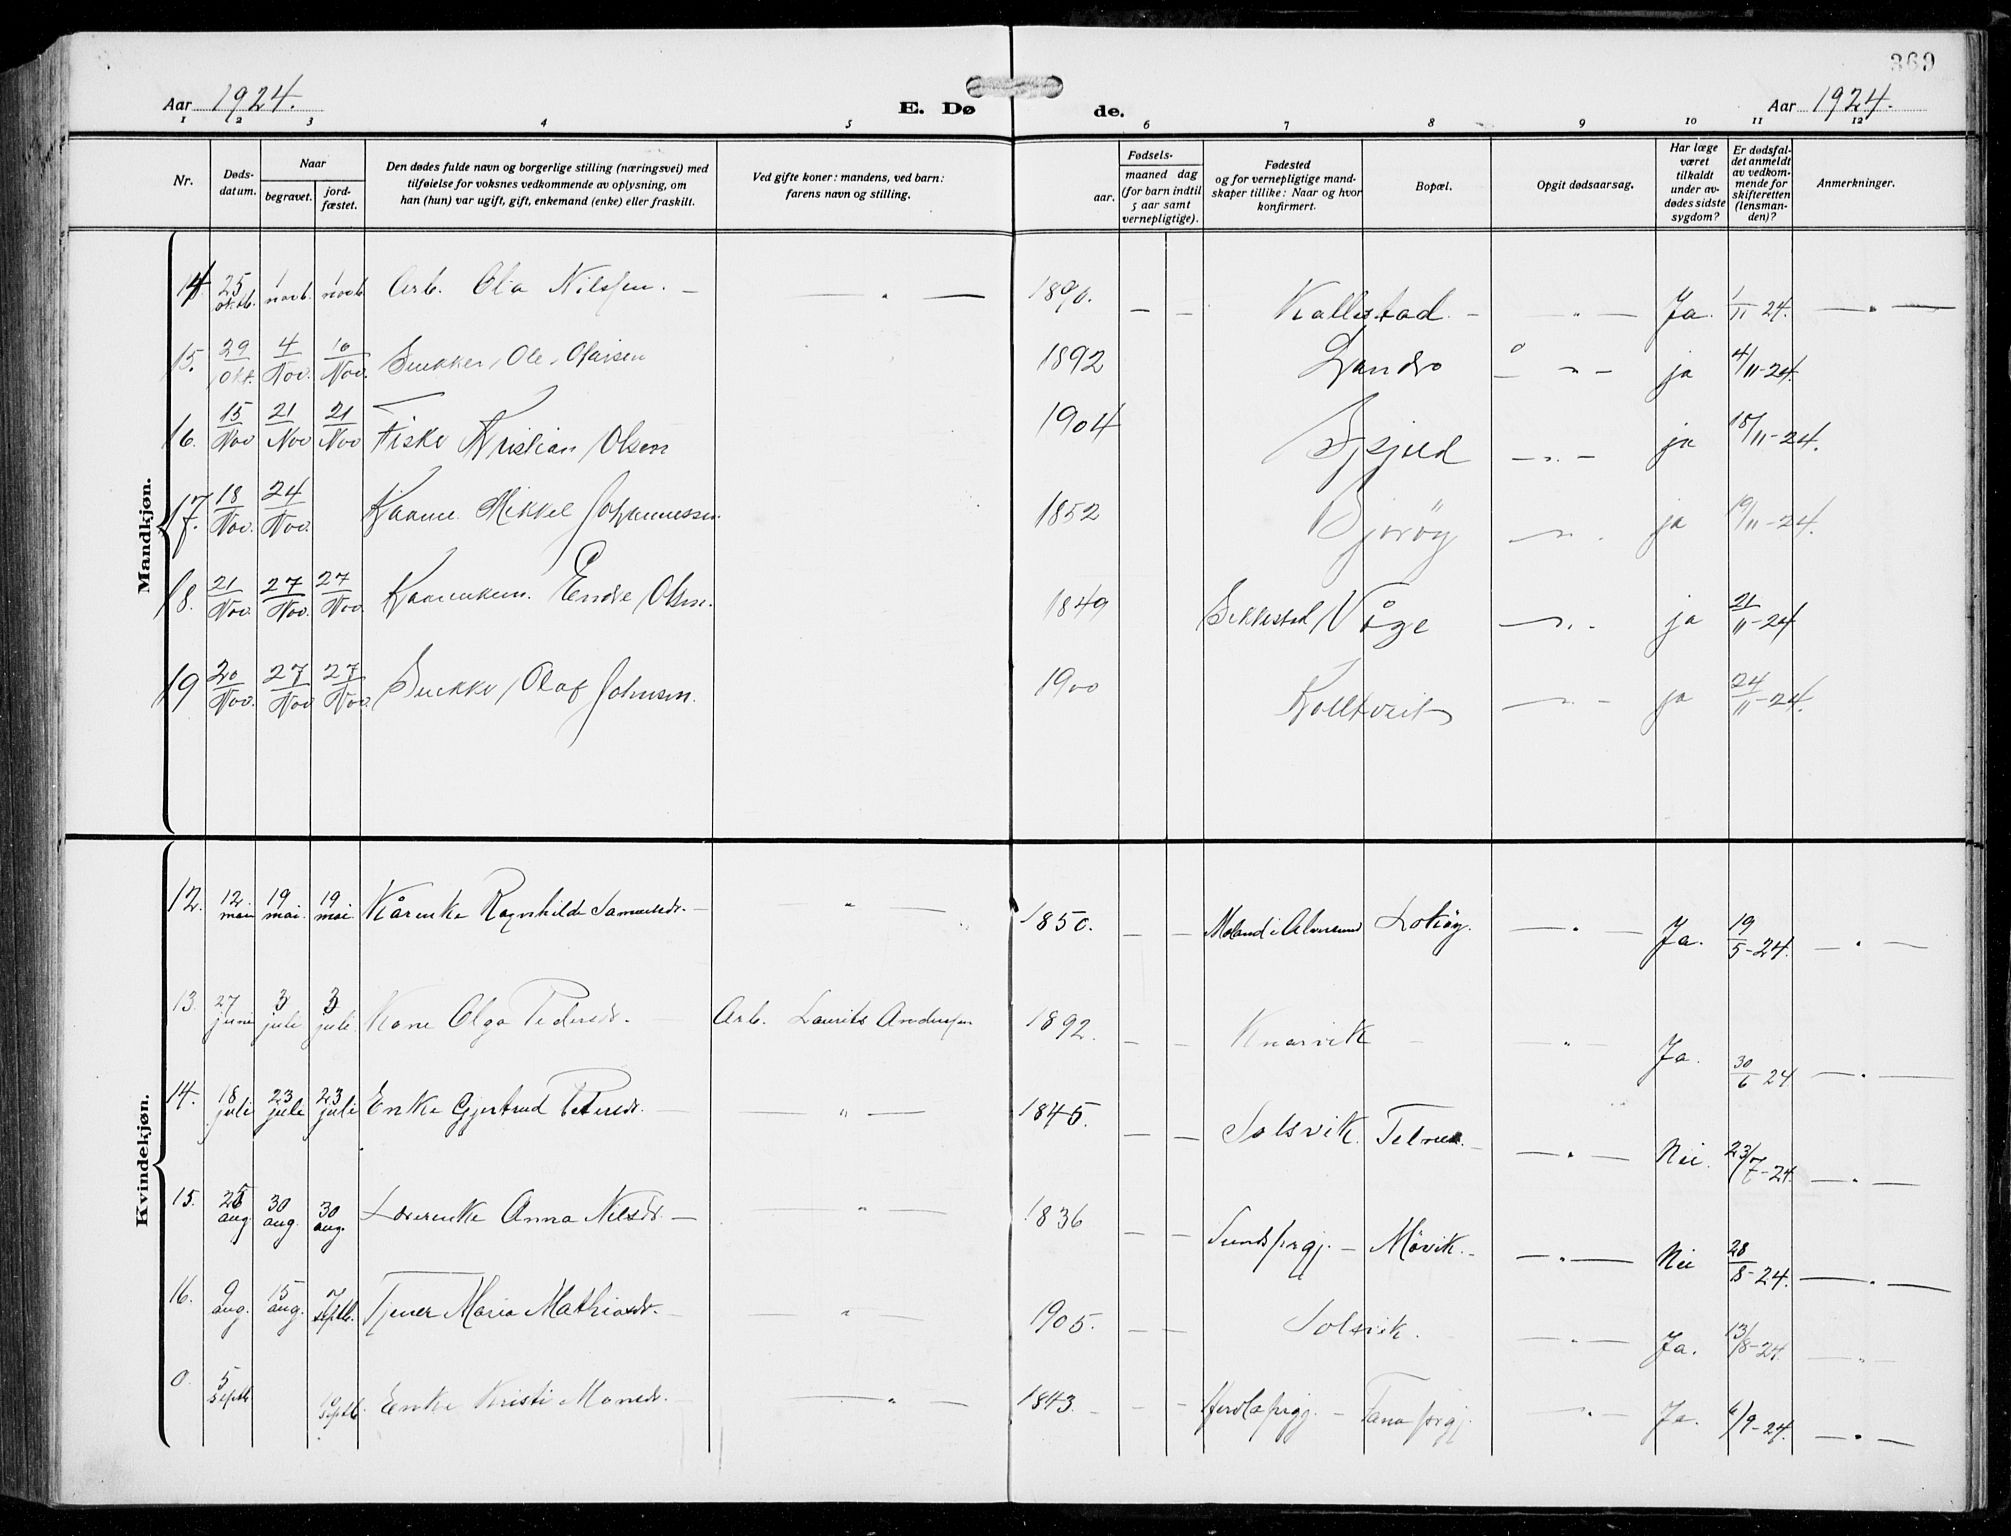 369
Aar 1924. E. Døde. Aar 1924.
1 2 3 4 5 6 7 8 9 10 11 12
Nr. | Døds-datum. | Naar begravet. | jord-fæstet. | Den dødes fulde navn og borgerlige stilling (næringsvei) med tilføielse for voksnes vedkommende av oplysning, om han (hun) var ugift, gift, enkemand (enke) eller fraskilt. | Ved gifte koner: mandens, ved barn: farens navn og stilling. | Fødsels- aar. | maaned dag (for barn indtil 5 aar samt vernepligtige). | Fødested og for vernepligtige mandskaper tillike: Naar og hvor konfirmert. | Bopæl. | Opgit dødsaarsag. | Har læge været tilkaldt under avdødes sidste sygdom? | Er dødsfaldet anmeldt av vedkommende for skifteretten (lensmanden)? | Anmerkninger.
Mandkjøn.
14 25 oktb. 1 novb. 1 novb. Arb. Ola Nilssen. — — " — 1890. — — Kallestad. — — " — Ja. 1/11-24. — " —
15. 29/Okt. 4/Nov. 10/Nov. Ole Olaisen 1892 Landro — " — ja 4/11-24.
16. 15/Nov 21/Nov 21/Nov Fisker Kristian Olsen 1904 — " — ja 18/11-24.
17. 18/Nov. 24/Nov. Mikkel Johannessen 1852 Bjorøy — " . ja 19/11-24.
18. 21/Nov. 27/Nov. 27/Nov. Endre Olsen. 1849 Våge — " . ja 21/11-24
19 20/Nov. 27/Nov 27/Nov. Olaf Johnsen. 1900 Kolltveit — " — ja 24/11-24.
Kvindekjøn.
12. 12. mai 19 mai. 19 mai. Kårenke Ragnhilde Samuelsdr. — — " — 1850. — — Moland i Alversund Lokøy. — " — Ja. 19/5-24. — " —
13. 27 juni 3 juli 3 juli. Kone Olga Pedersdr. — Arb. Laurits Anderssen 1892. — — Knarvik — — " — Ja. 30/6 24 — " —
14. 18 juli 23 juli 23 juli Enke Gjertrud Petersdr. — — " — 1845. — — Solsvik. Telnes. — — " — Nei. 23/7-24. — " —
15. 26 aug 30 aug. 30 aug. Lærerenke Anna Nilsdr. — — " — 1836 — — Sunds prgj. — Møvik. — — " — Nei 28/8-24. — " —
16. 9 aug. 15 aug. 7 septb. Tjener Maria Mathiasdr. — — " — 1905. — — Solsvik. — " — Ja. 13/8-24. — " —
0. 5 septb. septb. Enke Kristi Monsdr. — — " — 1843. — — Herdla prgj. — Fana prgj. — " — Ja. 6/9-24. — " —